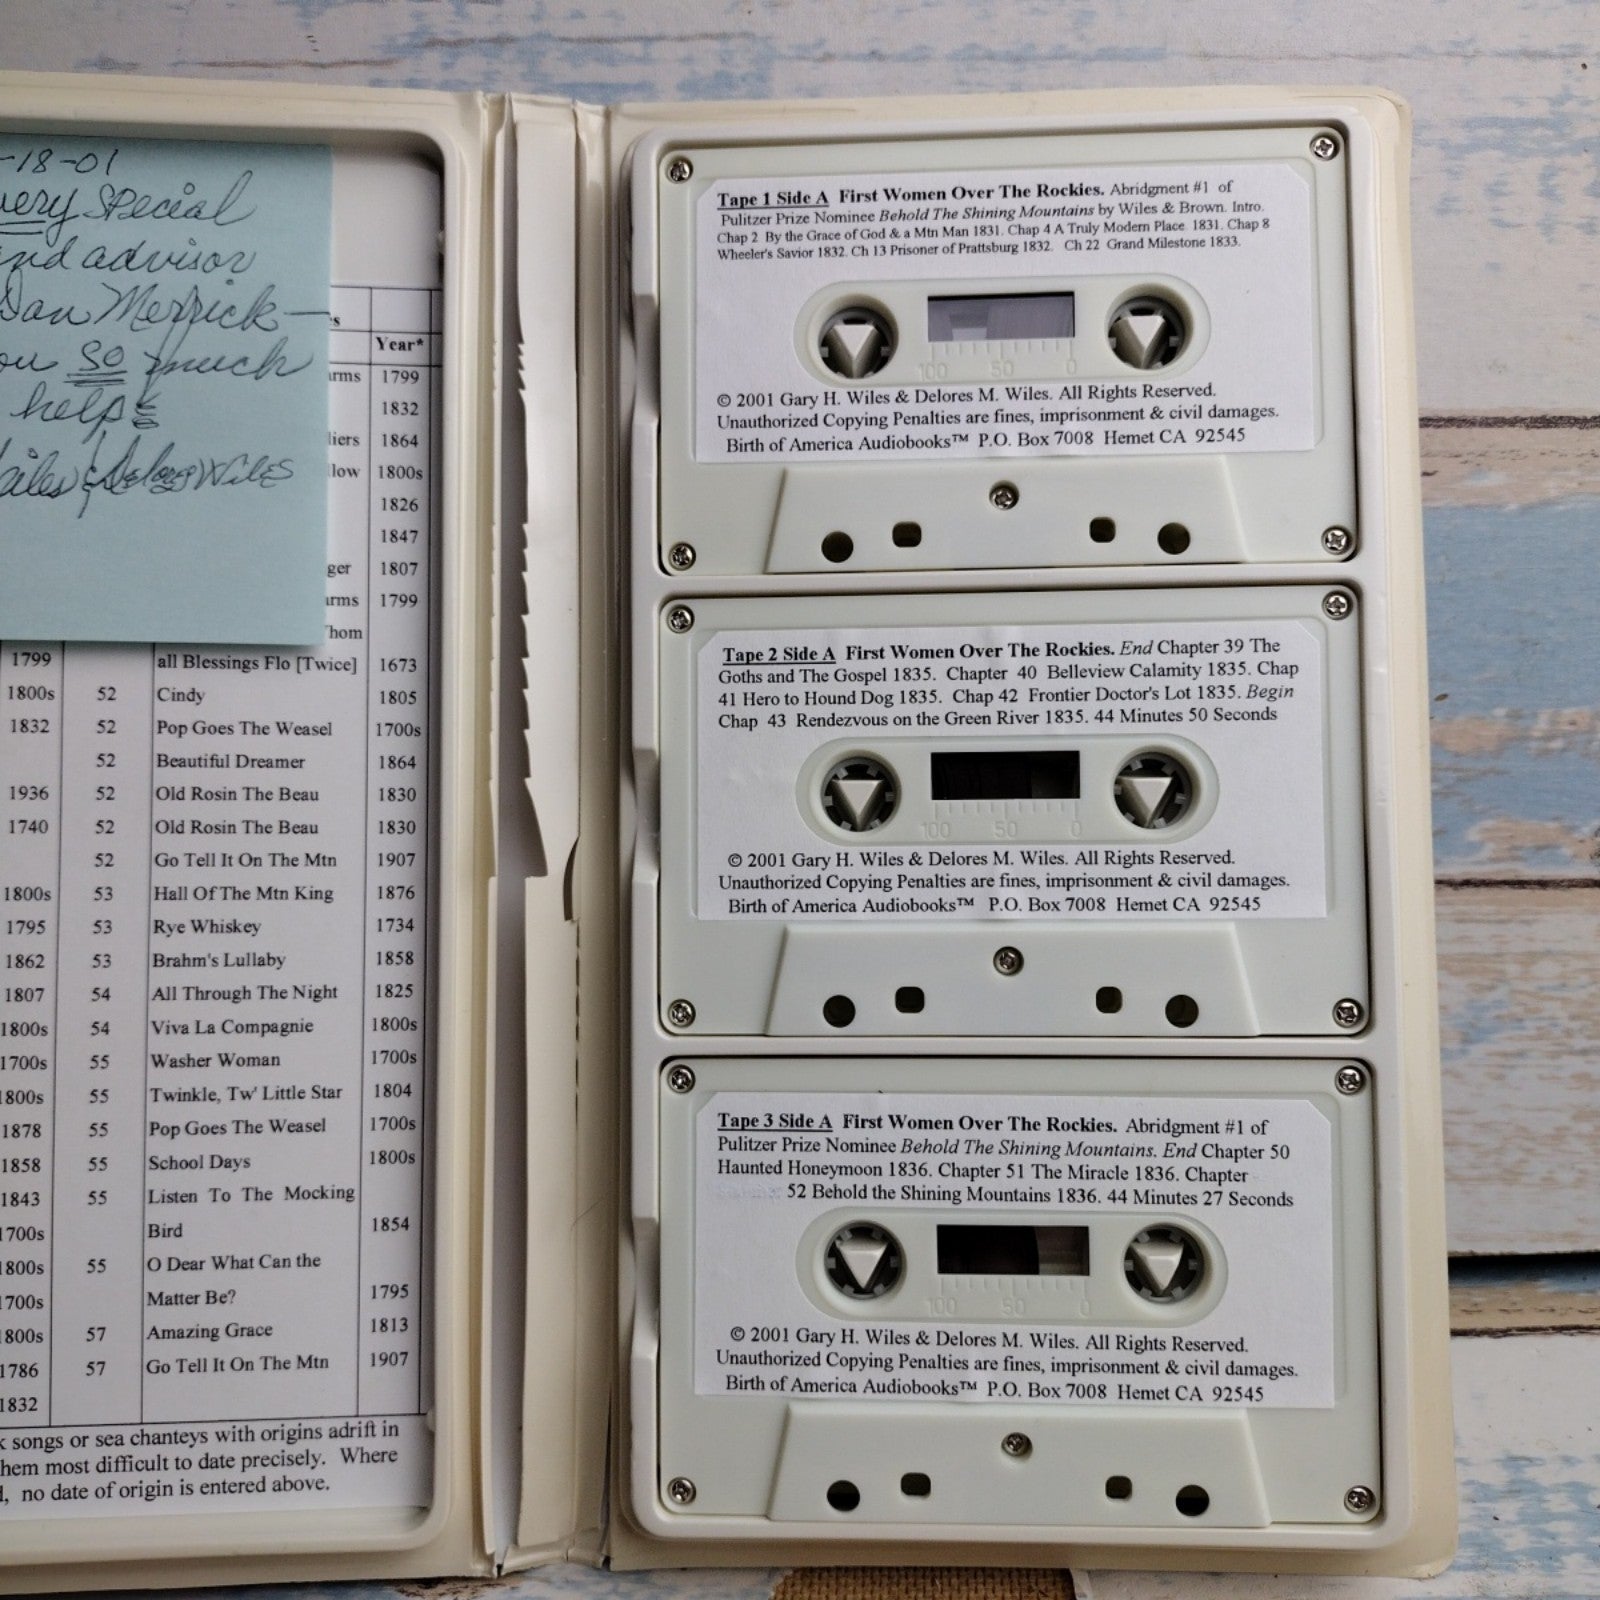 -18-01
very Special
and advisor
Dan Merrick-
you so much
help
& Delores Wiles
Year*
arms 1799
1832
liers 1864
low 1800s
1826
1847
ger 1807
arms 1799
Thom
1799 all Blessings Flo [Twice] 1673
1800s 52 Cindy 1805
1832 52 Pop Goes The Weasel 1700s
52 Beautiful Dreamer 1864
1936 52 Old Rosin The Beau 1830
1740 52 Old Rosin The Beau 1830
52 Go Tell It On The Mtn 1907
1800s 53 Hall Of The Mtn King 1876
1795 53 Rye Whiskey 1734
1862 53 Brahm's Lullaby 1858
1807 54 All Through The Night 1825
1800s 54 Viva La Compagnie 1800s
1700s 55 Washer Woman 1700s
1800s 55 Twinkle, Tw' Little Star 1804
1878 55 Pop Goes The Weasel 1700s
1858 55 School Days 1800s
1843 55 Listen To The Mocking
1700s Bird 1854
1800s 55 O Dear What Can the
1700s Matter Be? 1795
1800s 57 Amazing Grace 1813
1786 57 Go Tell It On The Mtn 1907
1832
k songs or sea chanteys with origins adrift in
hem most difficult to date precisely. Where
, no date of origin is entered above.
Tape 1 Side A First Women Over The Rockies. Abridgment #1 of
Pulitzer Prize Nominee Behold The Shining Mountains by Wiles & Brown. Intro.
Chap 2 By the Grace of God & a Mtn Man 1831. Chap 4 A Truly Modern Place 1831. Chap 8
Wheeler's Savior 1832. Ch 13 Prisoner of Prattsburg 1832. Ch 22 Grand Milestone 1833.
100 50 0
© 2001 Gary H. Wiles & Delores M. Wiles. All Rights Reserved.
Unauthorized Copying Penalties are fines, imprisonment & civil damages.
Birth of America Audiobooks™ P.O. Box 7008 Hemet CA 92545
Tape 2 Side A First Women Over The Rockies. End Chapter 39 The
Goths and The Gospel 1835. Chapter 40 Belleview Calamity 1835. Chap
41 Hero to Hound Dog 1835. Chap 42 Frontier Doctor's Lot 1835. Begin
Chap 43 Rendezvous on the Green River 1835. 44 Minutes 50 Seconds
100 50 0
© 2001 Gary H. Wiles & Delores M. Wiles. All Rights Reserved.
Unauthorized Copying Penalties are fines, imprisonment & civil damages.
Birth of America Audiobooks™ P.O. Box 7008 Hemet CA 92545
Tape 3 Side A First Women Over The Rockies. Abridgment #1 of
Pulitzer Prize Nominee Behold The Shining Mountains. End Chapter 50
Haunted Honeymoon 1836. Chapter 51 The Miracle 1836. Chapter
52 Behold the Shining Mountains 1836. 44 Minutes 27 Seconds
100 50 0
© 2001 Gary H. Wiles & Delores M. Wiles. All Rights Reserved.
Unauthorized Copying Penalties are fines, imprisonment & civil damages.
Birth of America Audiobooks™ P.O. Box 7008 Hemet CA 92545